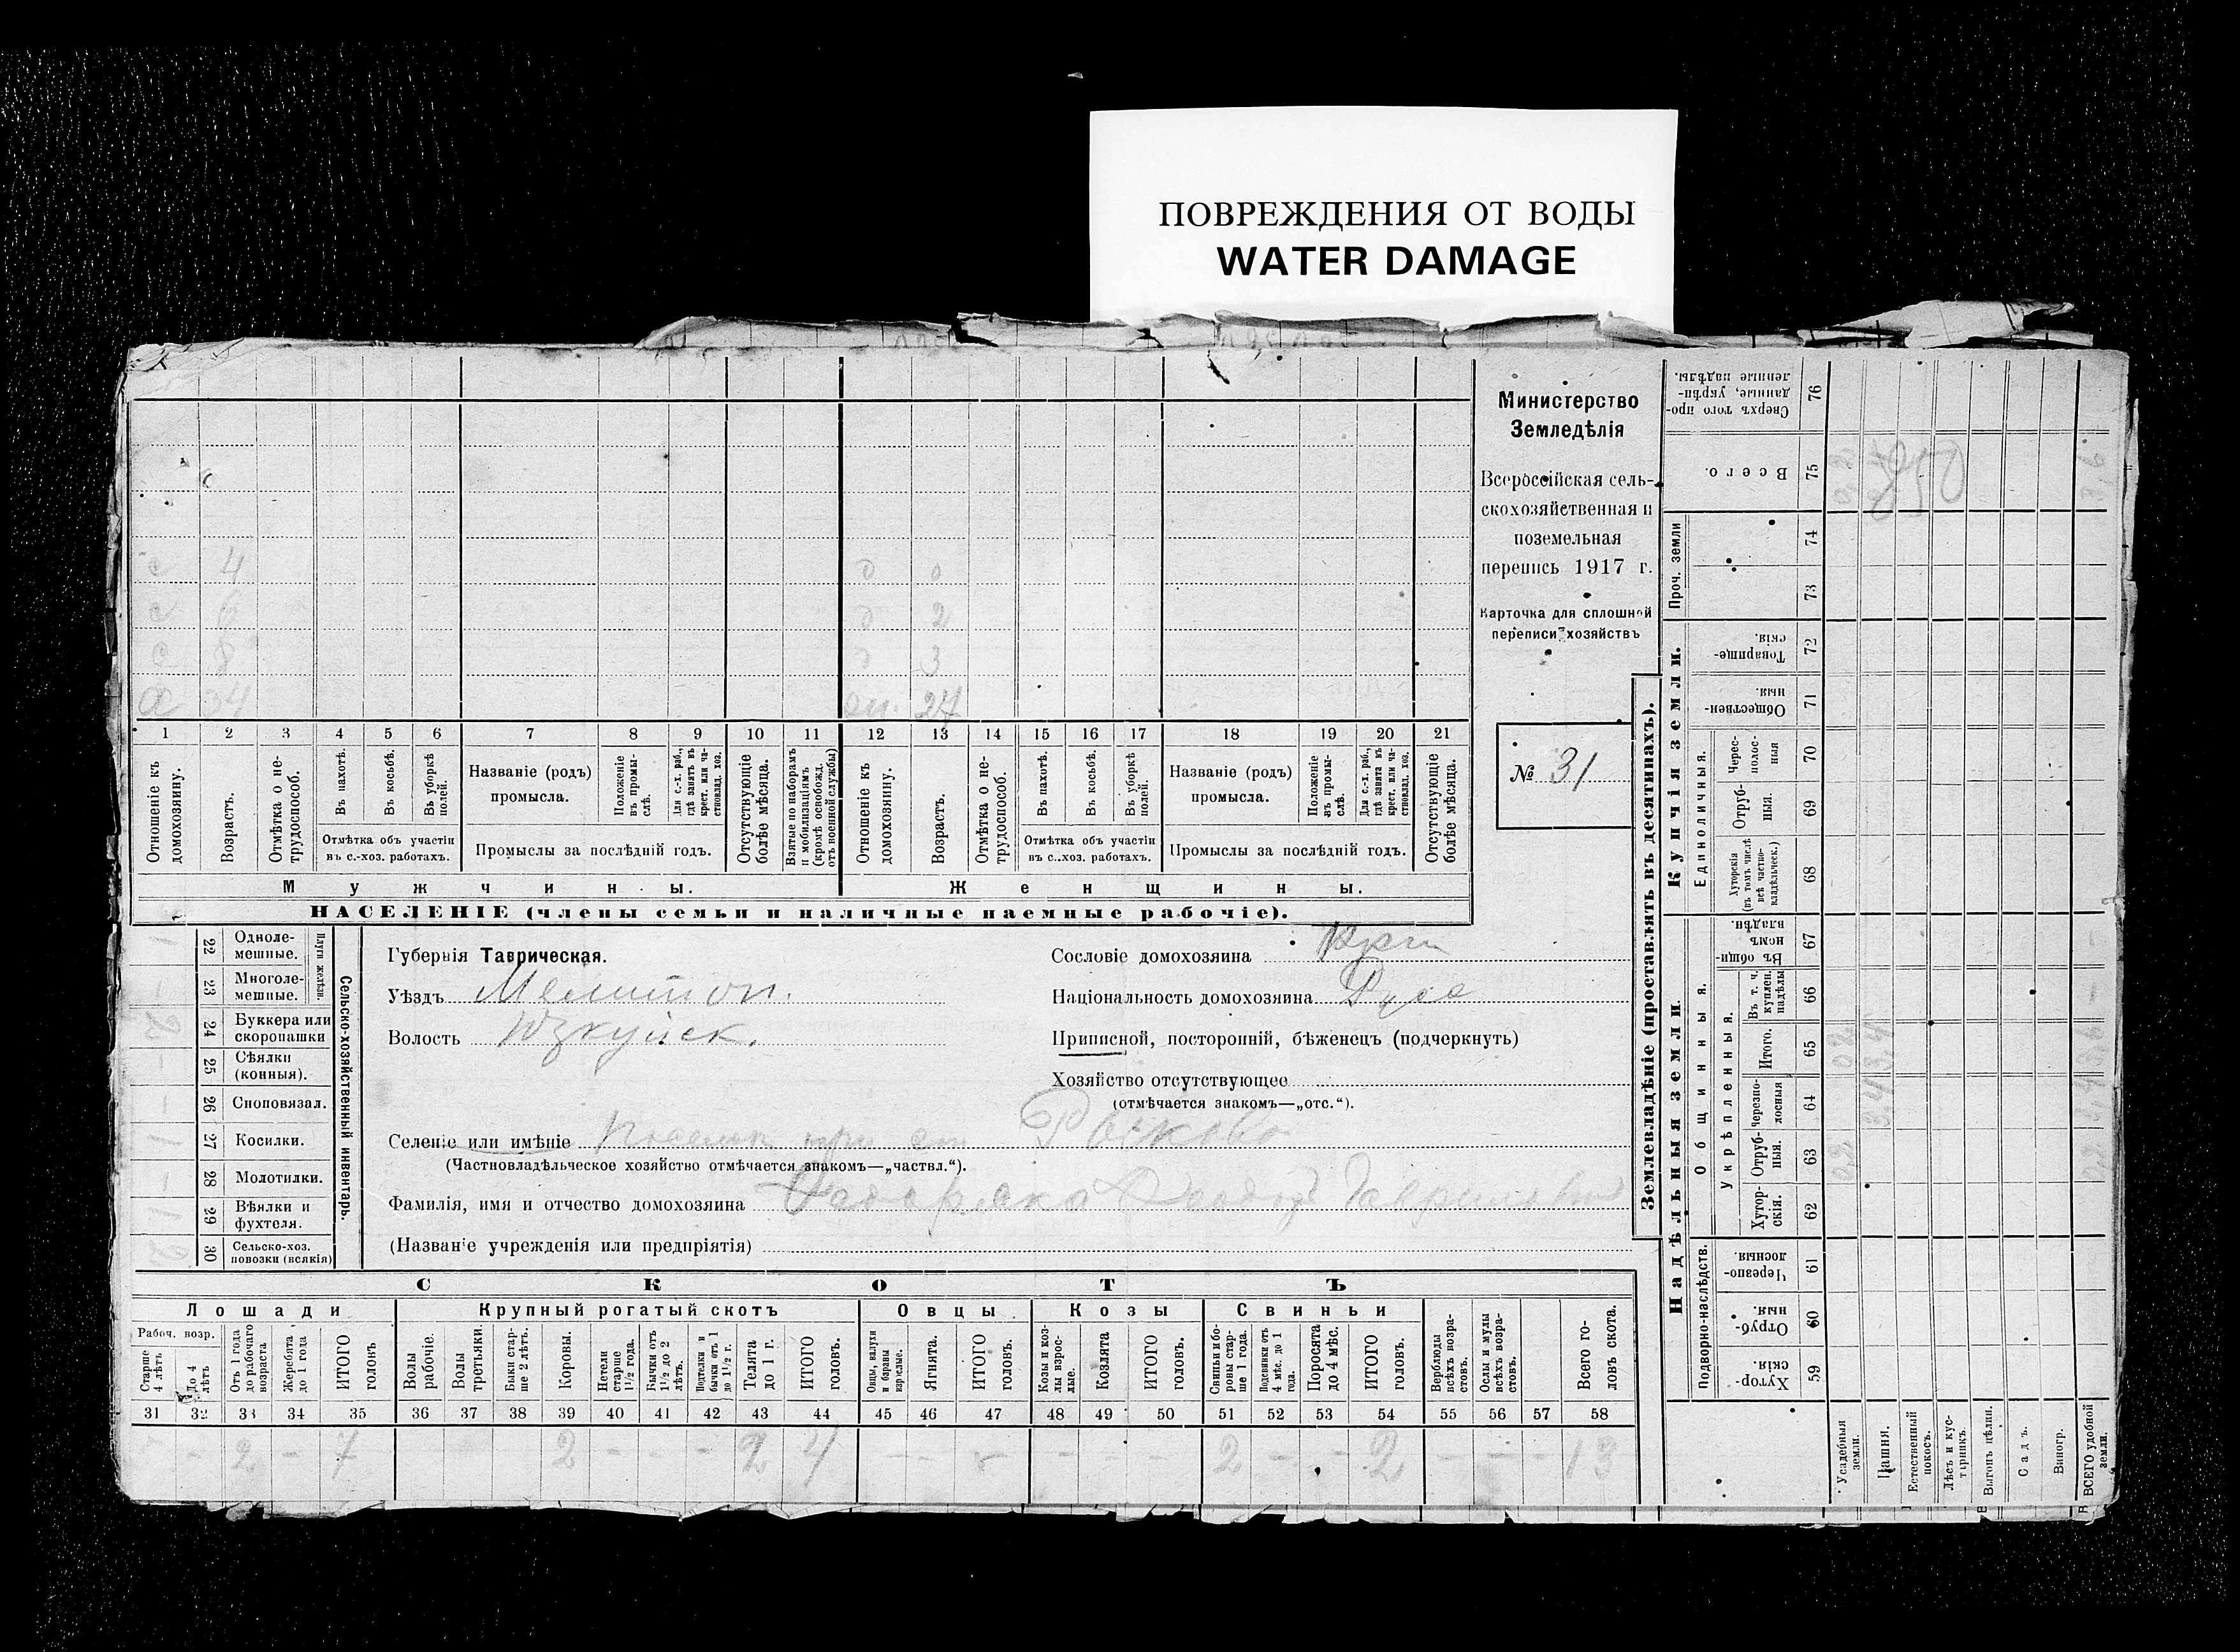 ПОВРЕЖДЕНИЯ ОТ ВОДЫ
WATER DAMAGE
Министерство
Земледѣлія
Всероссійская сель-
скохозяйственная и
поземельная
перепись 1917 г.
Карточка для сплошной
переписи хозяйствъ
№ 31
4
6 2
8 3
34 27
1 2 3 4 5 6 7 8 9 10 11 12 13 14 15 16 17 18 19 20 21
Отношеніе къ домохозяину.
Возрастъ.
Отмѣтка о не-трудоспособ.
Въ пахотѣ.
Въ косьбѣ.
Въ уборкѣ полей.
Отмѣтка объ участіи
въ с.-хоз. работахъ.
Названіе (родъ)
промысла.
Положеніе въ промы-слѣ.
Для с.-х. раб., гдѣ занятъ въ крест. или ча-стновлад. хоз.
Промыслы за послѣдній годъ.
Отсутствующіе болѣе мѣсяца.
Взятые по наборамъ и мобилизаціямъ (кромѣ освобожд. отъ военной службы)
Отношеніе къ домохозяину.
Возрастъ.
Отмѣтка о не-трудоспособ.
Въ пахотѣ.
Въ косьбѣ.
Въ уборкѣ полей.
Отмѣтка объ участіи
въ с.-хоз. работахъ.
Названіе (родъ)
промысла.
Положеніе въ промы-слѣ.
Для с.-х. раб., гдѣ занята въ крест. или ча-стновлад. хоз.
Промыслы за послѣдній годъ.
Отсутствующіе болѣе мѣсяца.
Мужчины. Женщины.
НАСЕЛЕНІЕ (члены семьи и наличные наемные рабочіе).
22 Одноле-мешные.
23 Многоле-мешные.
Плуги желѣзн.
24 Буккера или скоропашки 2
25 Сѣялки (конныя).
26 Сноповязал.
27 Косилки. 1
28 Молотилки.
29 Вѣялки и фухтеля. 1
30 Сельско-хоз. повозки (всякія) 2
Сельско-хозяйственный инвентарь.
Губернія Таврическая.
Уѣздъ Мелитоп.
Волость Юзкуйск.
Сословіе домохозяина Крест
Національность домохозяина Русс
Приписной, посторонній, бѣженецъ (подчеркнуть)
Хозяйство отсутствующее
(отмѣчается знакомъ—„отс.“).
Селеніе или имѣніе Поселок при
(Частновладѣльческое хозяйство отмѣчается знакомъ—„частвл.“).
Фамилія, имя и отчество домохозяина
(Названіе учрежденія или предпріятія)
СКОТЪ
Лошади Крупный рогатый скотъ Овцы Козы Свиньи
Рабоч. возр.
Старше 4 лѣтъ
До 4 лѣтъ
Отъ 1 года до рабочаго возраста
Жеребята до 1 года
ИТОГО головъ
Волы рабочіе.
Волы третьяки.
Быки стар-ше 2 лѣтъ.
Коровы.
Нетели старше 1½ года.
Бычки отъ 1½ до 2 лѣтъ.
Подтелки и бычки отъ 1 до 1½ г.
Телята до 1 г.
ИТОГО головъ.
Овцы, валухи и бараны взрослые.
Ягнята.
ИТОГО головъ.
Козы и коз-лы взрос-лые.
Козлята
ИТОГО головъ.
Свиньи и бо-ровы стар-ше 1 года.
Подсвинки отъ 4 мѣс. до 1 года.
Поросята до 4 мѣс.
ИТОГО головъ.
Верблюды всѣхъ возра-стовъ.
Ослы и мулы всѣхъ возра-стовъ.
Всего го-ловъ скота.
31 32 33 34 35 36 37 38 39 40 41 42 43 44 45 46 47 48 49 50 51 52 53 54 55 56 57 58
- 2 - 7 2 - - - 2 4 - - - - - 2 - - 2 - - - 13
Землевладѣніе (проставлять въ десятинахъ).
Купчія земли.
Надѣльныя земли.
Сверхъ того про-данные, укрѣп-ленные надѣлы. 76
Всего. 75
Проч. земли 74 73
Товарище-скія. 72
Обществен-ныя. 71
Единоличныя.
Черес-полос-ныя 70
Отруб-ныя. 69
Хуторскія (въ томъ числѣ всѣ частно-владѣльческ.) 68
Общинныя.
Въ общи-номъ владѣн. 67
Укрѣпленныя.
Въ т. ч. куплен. надѣлы 66
Итого. 65
Черезпо-лосныя 64
Отруб-ныя. 63
Хутор-скія. 62
Подворно-наслѣдств.
Черезпо-лосныя 61
Отруб-ныя. 60
Хутор-скія. 59
Усадебныя земли.
Пашня.
Естественный покосъ.
Лѣсъ и кус-тарникъ.
Выгонъ цѣлин.
Садъ.
Виногр.
ВСЕГО удобной земли.